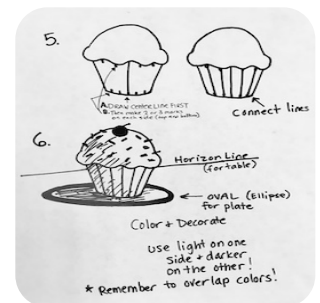 5.
A. DRAW CENTER LINE FIRST
B. Then make 2 or 3 marks
on each side (top and bottom)
Connect lines
6.
Horizon Line
(for table)
← OVAL (Ellipse)
for plate
Color + Decorate
use light on one
side + darker
on the other!
* Remember to overlap colors!